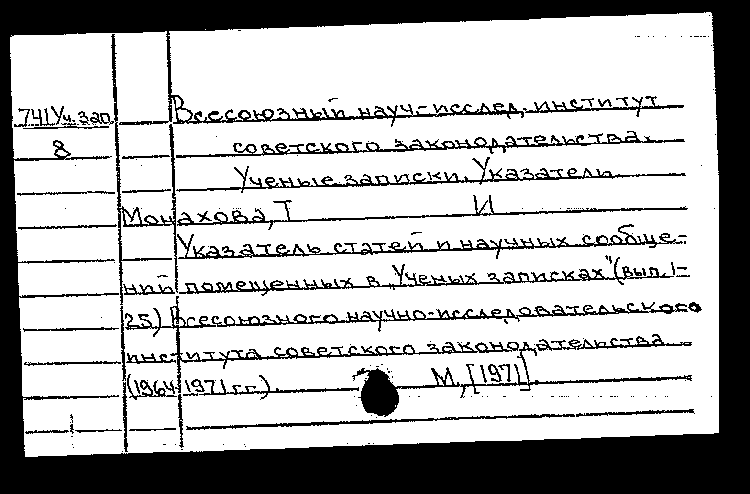 741 Уч. зап. Всесоюзный науч.-исслед. институт
8 советского законодательства.
Ученые записки. Указатели
Монахова, Т И
Указатель статей и научных сообще-
ний помещенных в "Ученых записках" (вып. 1-
25) Всесоюзного научно-исследовательского
института советского законодательства
(1964-1971 г.г.). М., [1971].